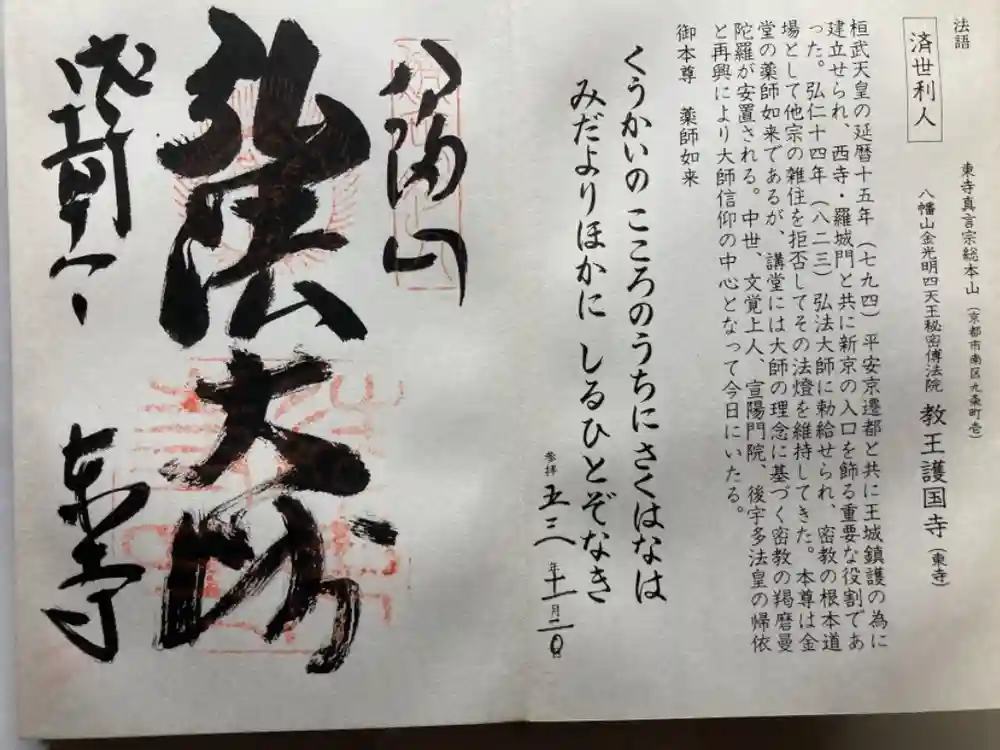 法語
済世利人
東寺真言宗総本山（京都市南区九条町壱）
八幡山金光明四天王秘密傅法院 教王護国寺（東寺）
桓武天皇の延暦十五年（七九四）平安京遷都と共に王城鎮護の為に
建立せられ、西寺・羅城門と共に新京の入口を飾る重要な役割であ
った。弘仁十四年（八二三）弘法大師に勅給せられ、密教の根本道
場として他宗の雑住を拒否してその法燈を維持してきた。本尊は金
堂の薬師如来であるが、講堂には大師の理念に基づく密教の羯磨曼
陀羅が安置される。中世、文覚上人、宣陽門院、後宇多法皇の帰依
と再興により大師信仰の中心となって今日にいたる。
御本尊 薬師如来
くうかいの こころのうちにさくはなは
みだよりほかに しるひとぞなき
参拝 五三年十一月二〇
八幡山
弘法大師
東寺